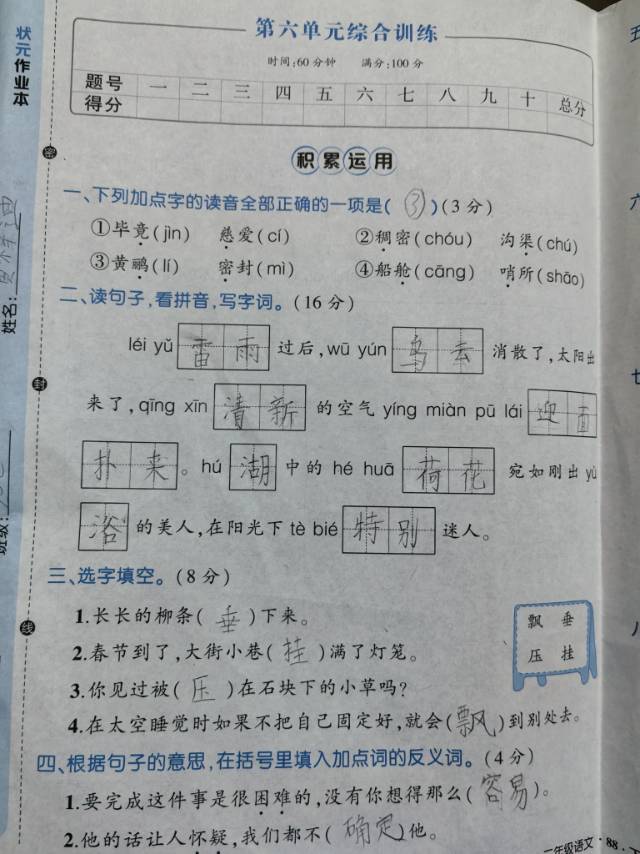 状元作业本
第六单元综合训练
时间:60分钟 满分:100分
题号 一 二 三 四 五 六 七 八 九 十 总分
得分
积累运用
一、下列加点字的读音全部正确的一项是( ③ )(3分)
①毕竟(jìn) 慈爱(cí) ②稠密(chóu) 沟渠(chú)
③黄鹂(lí) 密封(mì) ④船舱(cāng) 哨所(shāo)
二、读句子,看拼音,写字词。(16分)
léi yǔ 雷雨 过后,wū yún 乌云 消散了,太阳出
来了,qīng xīn 清新 的空气 yíng miàn pū lái 迎面
扑来。hú 湖 中的 hé huā 荷花 宛如刚出 yù
浴 的美人,在阳光下 tè bié 特别 迷人。
三、选字填空。(8分)
飘 垂
压 挂
1.长长的柳条( 垂 )下来。
2.春节到了,大街小巷( 挂 )满了灯笼。
3.你见过被( 压 )在石块下的小草吗?
4.在太空睡觉时如果不把自己固定好,就会(飘)到别处去。
四、根据句子的意思,在括号里填入加点词的反义词。(4分)
1.要完成这件事是很困难的,没有你想得那么( 容易 )。
2.他的话让人怀疑,我们都不( 确定 )他。
二年级语文·88·下
姓名:
班级:
密
封
线
五
六
七
八